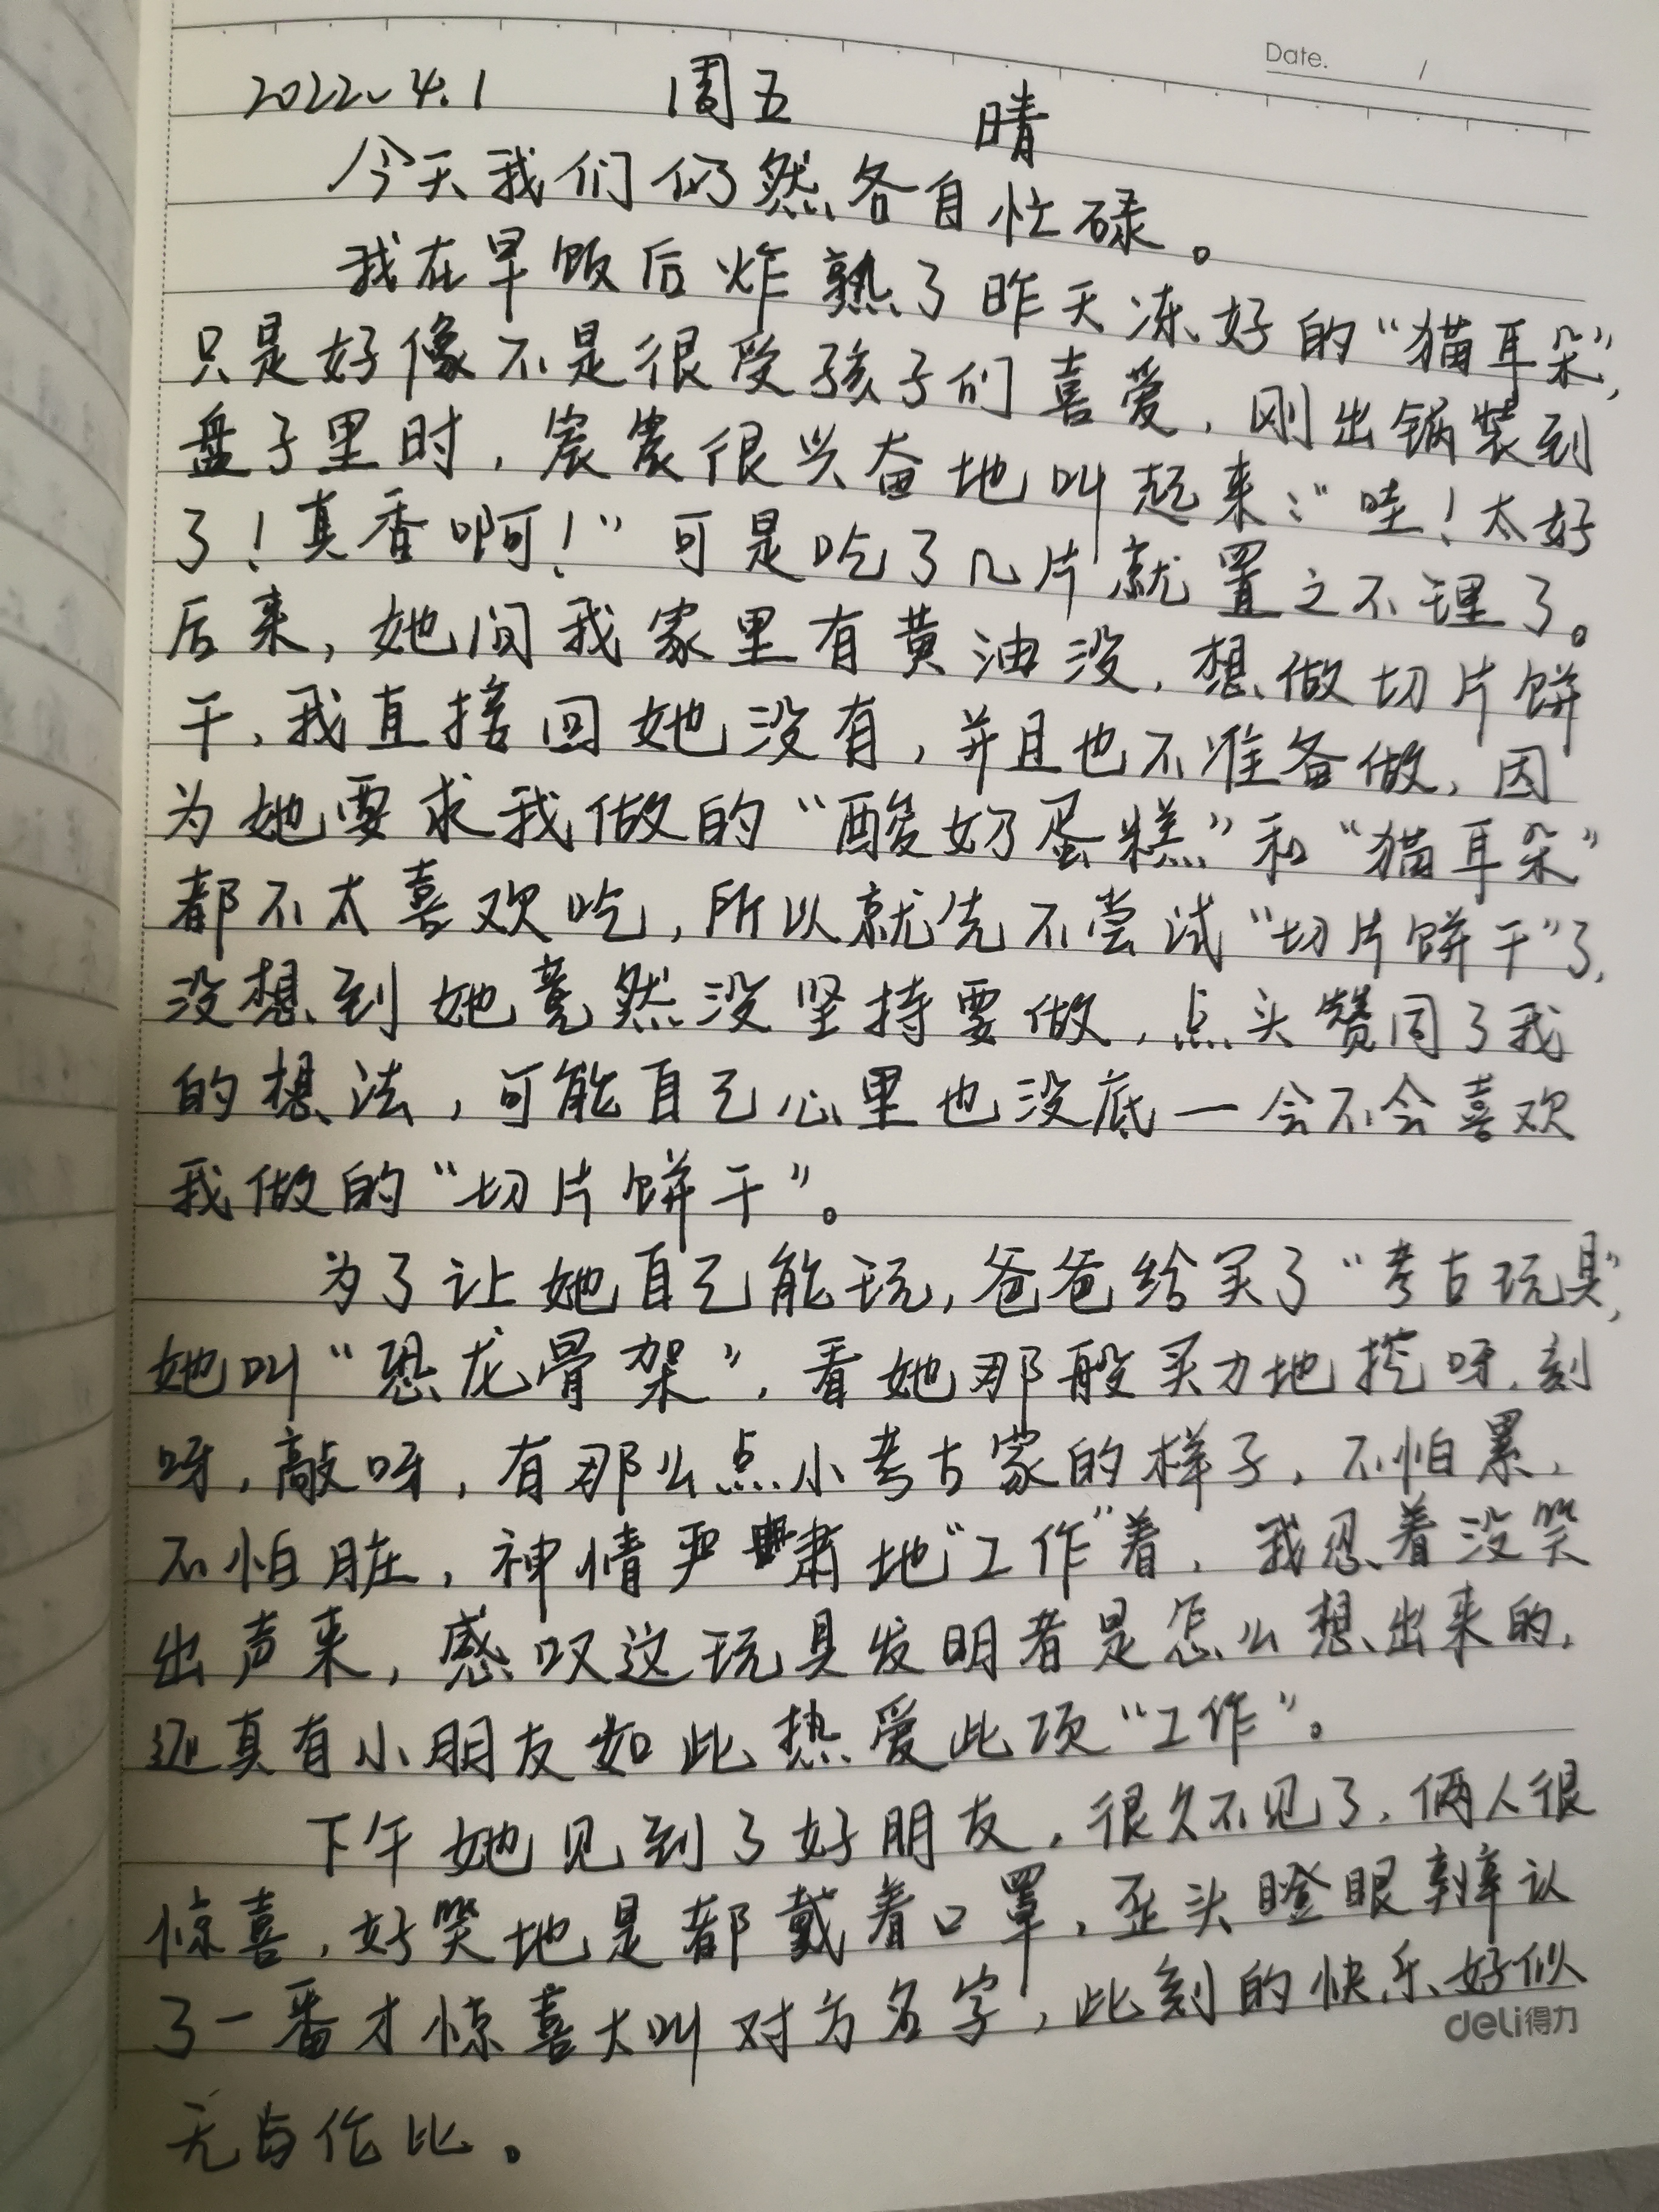 Date. /
2022.4.1 周五 晴
今天我们仍然各自忙碌。
我在早饭后炸熟了昨天冻好的“猫耳朵”,
只是好像不是很受孩子们喜爱,刚出锅装到
盘子里时,宸宸很兴奋地叫起来:“哇!太好
了!真香啊!”可是吃了几片就置之不理了。
后来,她问我家里有黄油没,想做切片饼
干,我直接回她没有,并且也不准备做,因
为她要求我做的“酸奶蛋糕”和“猫耳朵”
都不太喜欢吃,所以就先不尝试“切片饼干”了,
没想到她竟然没坚持要做,点头赞同了我
的想法,可能自己心里也没底一会不会喜欢
我做的“切片饼干”。
为了让她自己能玩,爸爸给买了“考古玩具”,
她叫“恐龙骨架”,看她那般买力地挖呀,刻
呀,敲呀,有那么点小考古家的样子,不怕累,
不怕脏,神情严肃地“工作”着,我忍着没笑
出声来,感叹这玩具发明者是怎么想出来的,
还真有小朋友如此热爱此项“工作”。
下午她见到了好朋友,很久不见了,俩人很
惊喜,好笑地是都戴着口罩,歪头瞪眼辨认
了一番才惊喜大叫对方名字,此刻的快乐好似
deli得力
无与伦比。